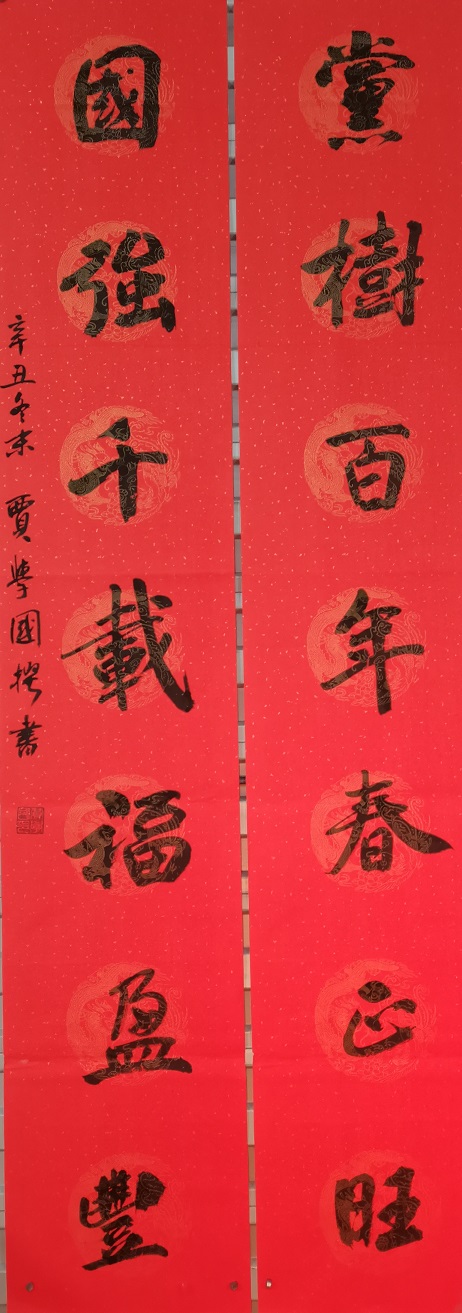 黨樹百年春正旺
國強千載福盈豐
辛丑冬末 賈學國撰書